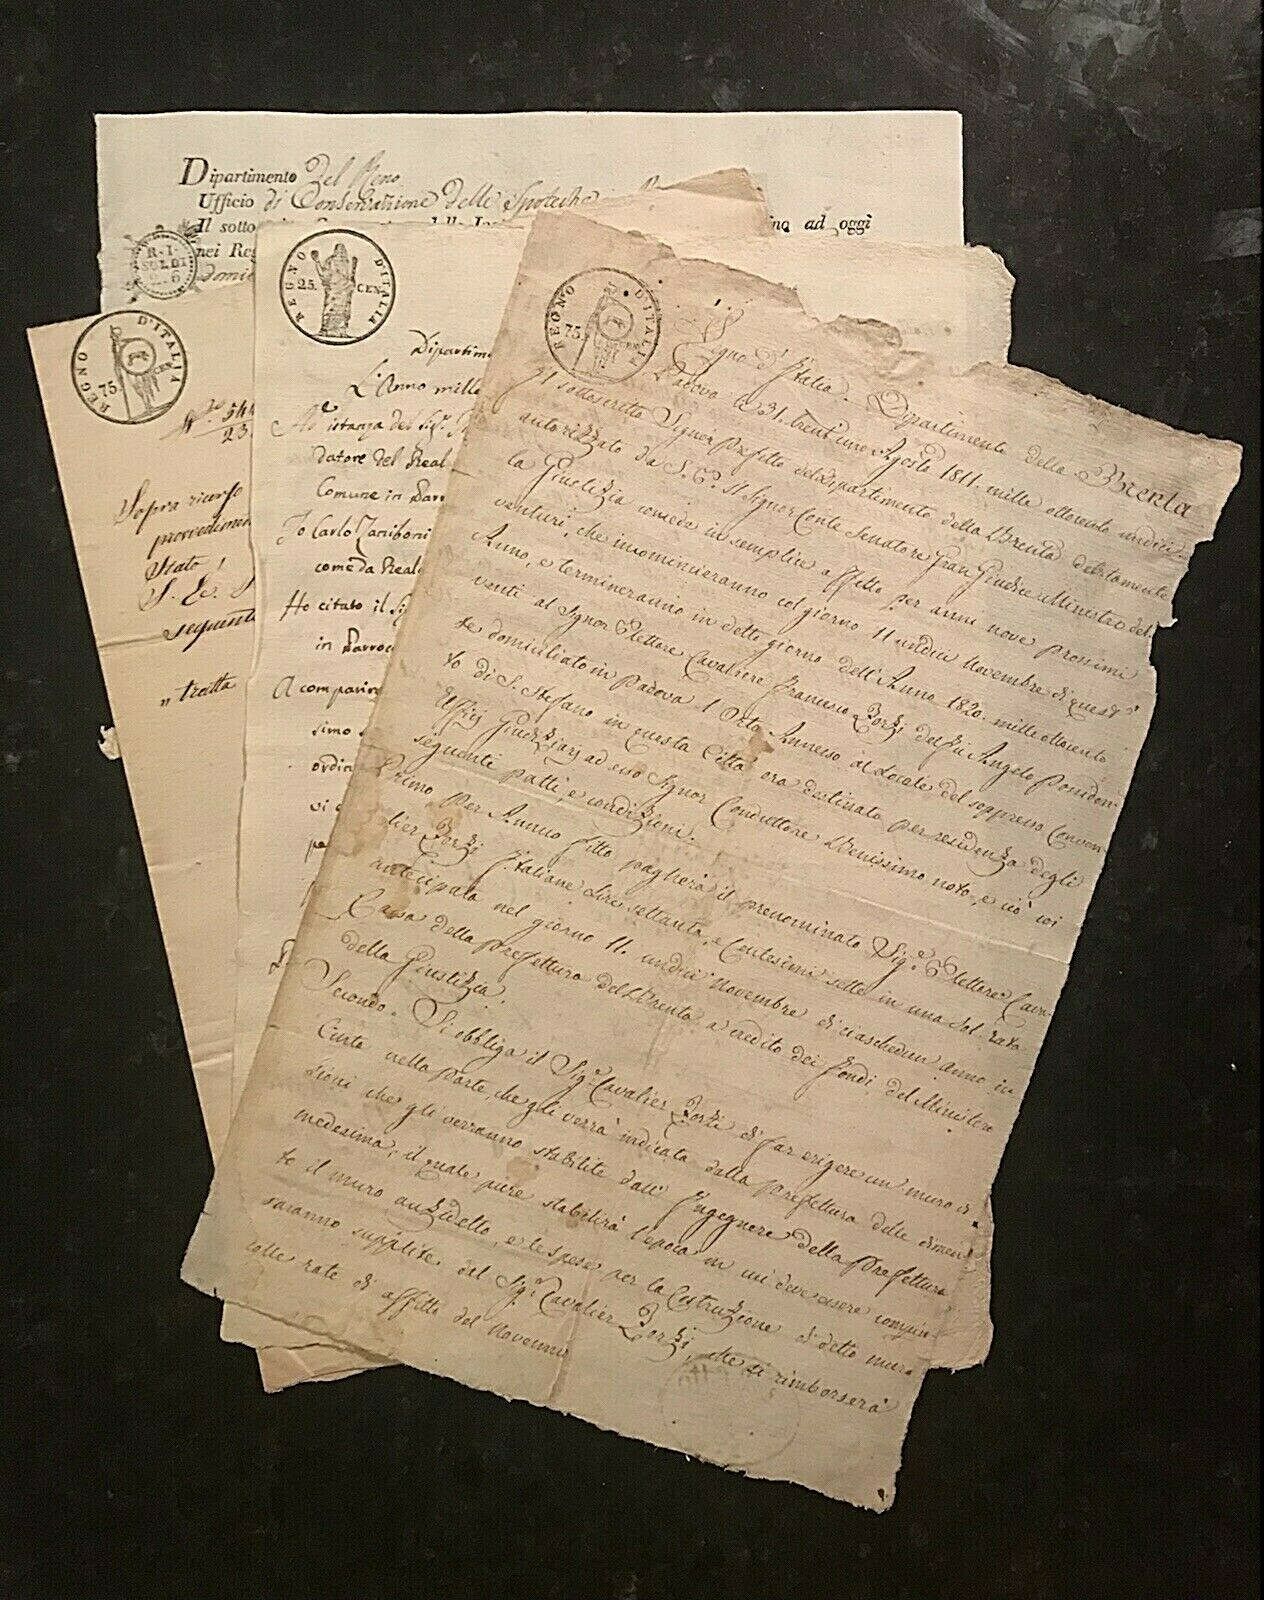 Dipartimento del Reno
Ufficio di Conservazione delle Ipoteche
Il sotto
ino ad oggi
nei Reg
domi
R. I.
SOLDI
6
REGNO D'ITALIA
75 CEN.
N.º 544
23
Sopra ricorso
provvedimen
Stato,
S. E. S.
seguente
„tratta
REGNO D'ITALIA
25. CEN.
Dipartime
L'Anno mille
Ad istanza del Sig.r
datore del Real
Comune in Parro
Io Carlo Taniboni
come da Reale
Ho citato il Sig
in Parroc
A comparire
simo
ordin
vi
pa
REGNO D'ITALIA
75. CEN.
Regno d'Italia. Dipartimento della Brenta
Padova li 31. trentuno Agosto 1811. mille ottocento undici.
Il sottoscritto Signor Prefetto del Dipartimento della Brenta debitamente
autorizzato da S. E. Il Signor Conte Senatore Gran Giudice Ministro del-
la Giustizia concede in semplice affitto per anni nove prossimi
venturi, che incomincieranno col giorno 11 undici Novembre di quest'
Anno, e termineranno in detto giorno dell'Anno 1820. mille ottocento
venti al Signor Elettore Cavaliere Francesco Zorzi del fu Angelo Possiden-
te domiciliato in Padova l'Orto Annesso al Locale del soppresso Conven-
to di S. Stefano in questa Città ora destinato per residenza degli
Uffizj Giudiziarj ad esso Signor Conduttore benissimo noto, e ciò coi
seguenti patti, e condizioni.
Primo Per Annuo fitto pagherà il prenominato Sig.r Elettore Cava-
lier Zorzi Italiane Lire settanta, e Centesimi sette in una sol rata
antecipata nel giorno 11. undici Novembre di ciaschedun anno in
Cassa della Prefettura del Brenta a credito dei fondi del Ministero
della Giustizia.
Secondo. Si obbliga il Sig.r Cavalier Zorzi di far erigere un muro di
Cinta nella parte, che gli verrà indicata dalla Prefettura delle dimen-
sioni che gli verranno stabilite dall' Ingegnere della Prefettura
medesima, il quale pure stabilirà l'epoca in cui deve essere compiu-
to il muro anzidetto, e le spese per la Costruzione di detto muro
saranno supplite dal Sig.r Cavalier Zorzi, che si rimborserà
colle rate di affitto del Novennio